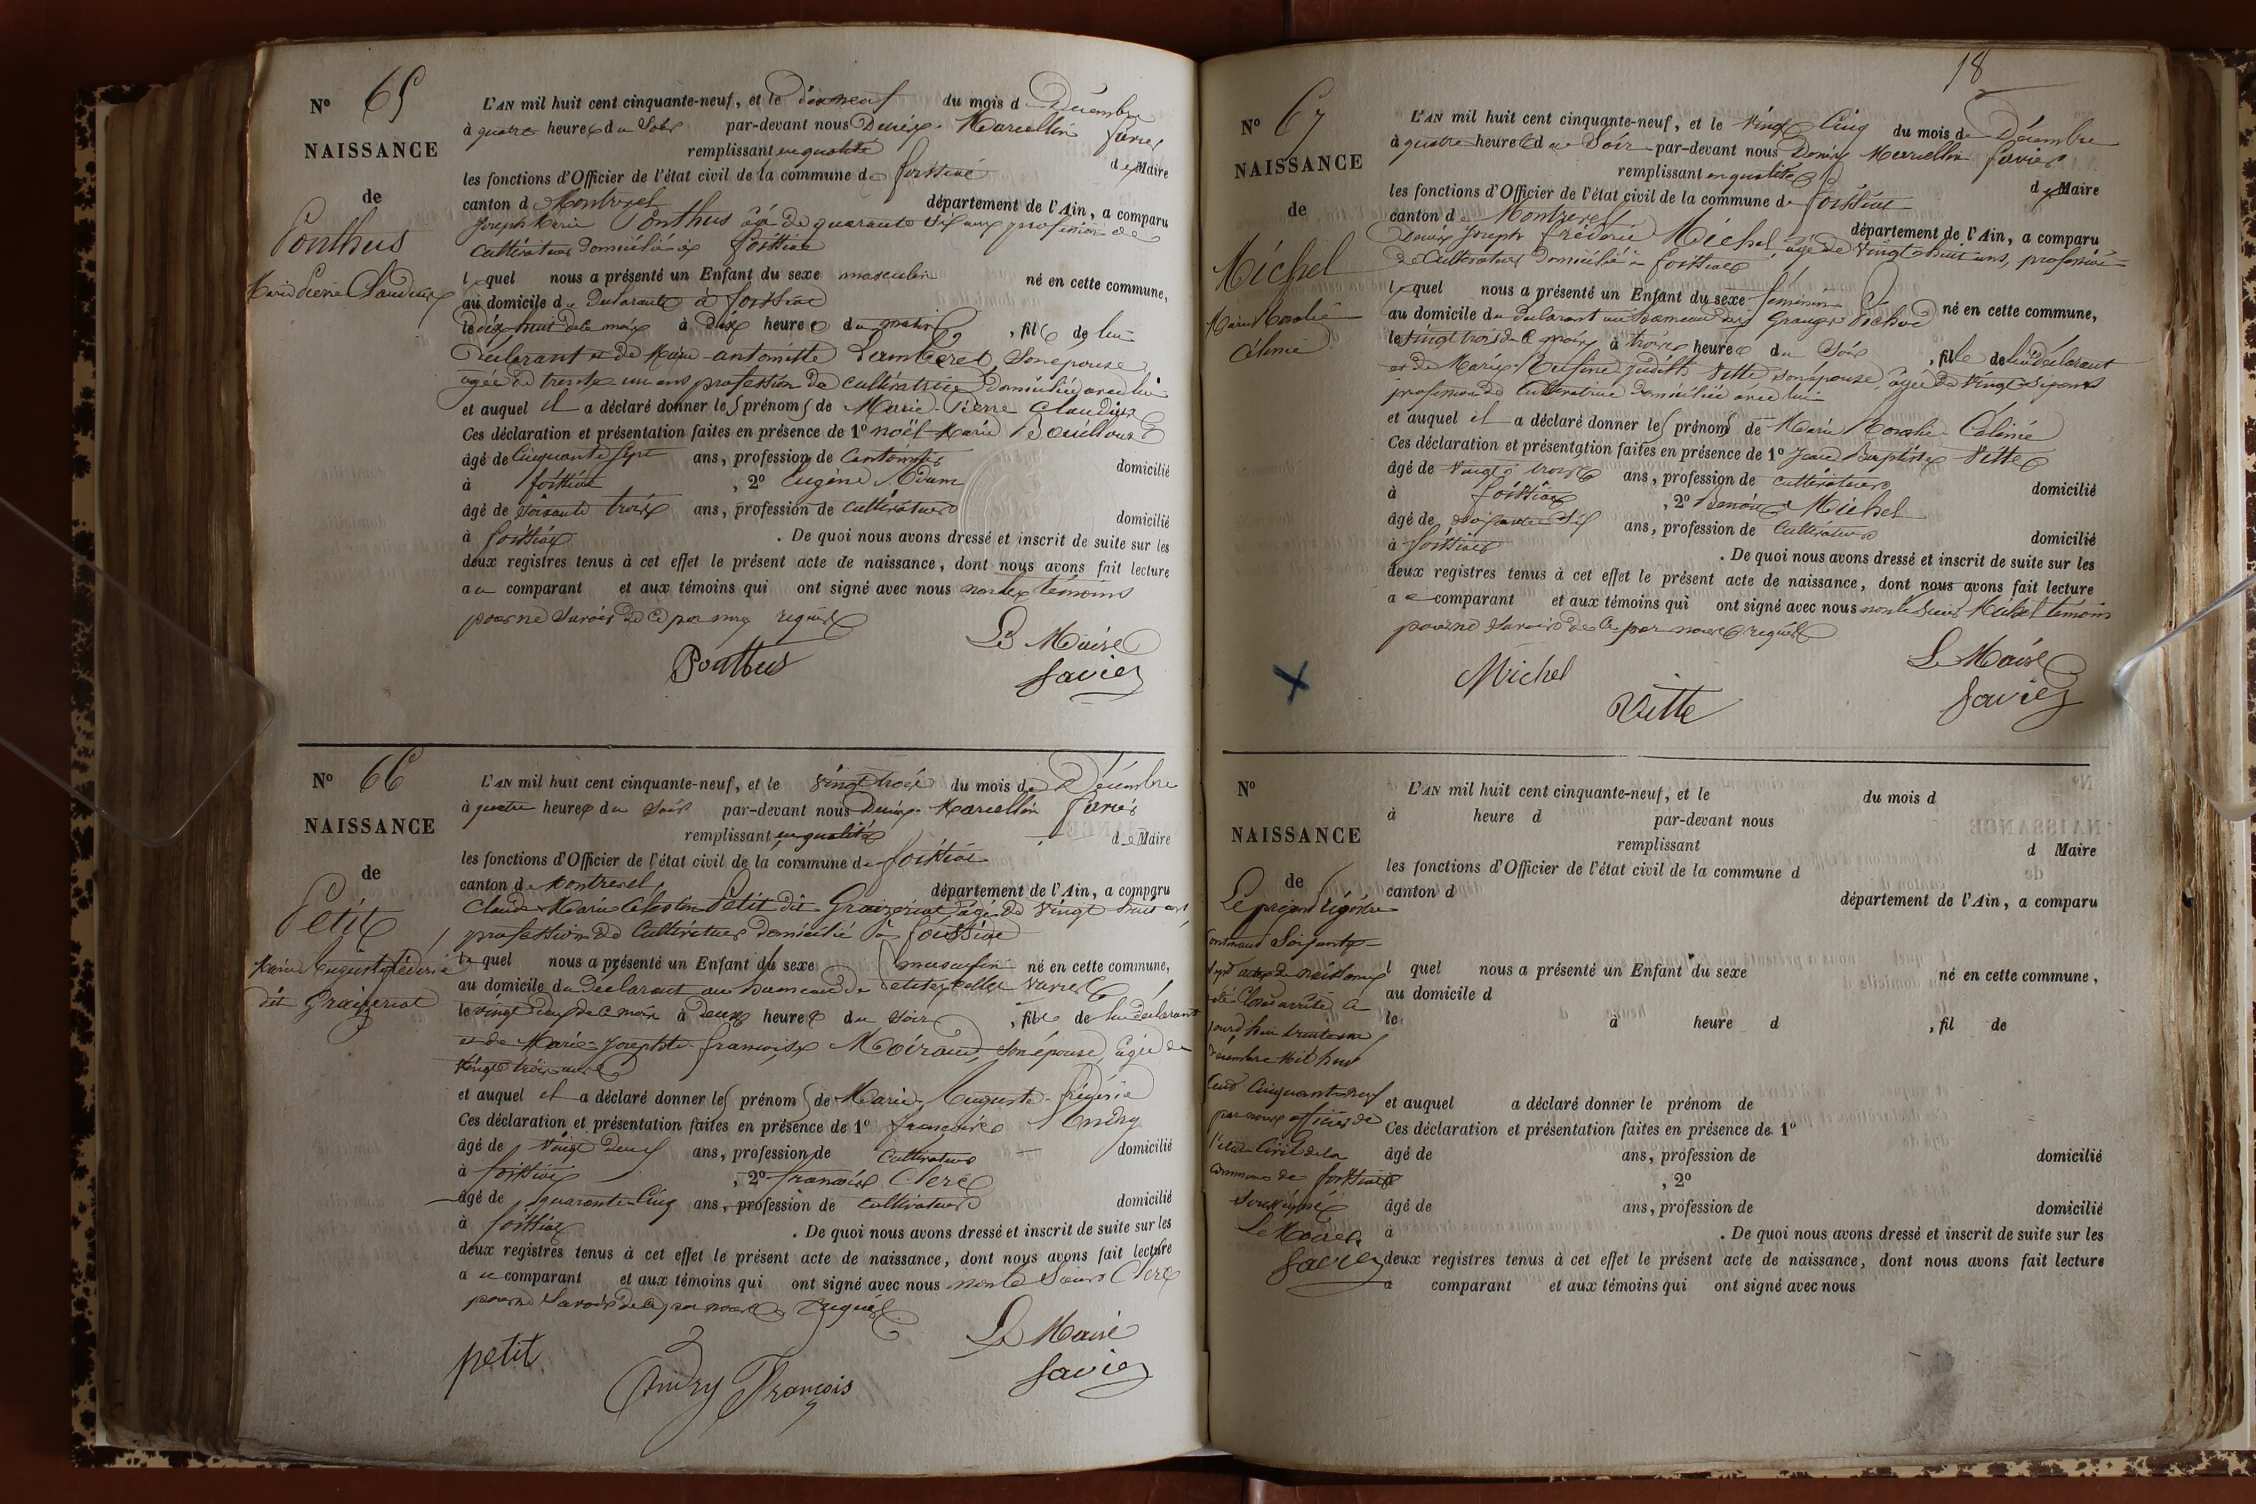 Nº 65
NAISSANCE
de
Ponthus
Marie Pierre Claudius
L'AN mil huit cent cinquante-neuf, et le dix neuf du mois de Décembre
à quatre heures du Soir par-devant nous Denix Marcellin favier
remplissant en qualité de Maire
les fonctions d'Officier de l'état civil de la commune de foissiat
canton de Montrevel département de l'Ain, a comparu
Joseph Marie Ponthus âgé de quarante six ans profession de
Cultivateur domicilié à foissiat
lequel nous a présenté un Enfant du sexe masculin né en cette commune,
au domicile du declarant à foissiat
le dix huit de ce mois à dix heures du matin, fils de lui
declarant et de Marie antoinette Lamberet, son epouse,
agée de trente un ans profession de cultivatrice domiciliée avec lui
et auquel il a déclaré donner les prénoms de Marie-Pierre Claudius
Ces déclaration et présentation faites en présence de 1º noël Marie Bouilloux
âgé de Cinquante sept ans, profession de Cantonnier domicilié
à foissiat, 2º Eugène Adam
âgé de soixante trois ans, profession de cultivateur domicilié
à foissiat. De quoi nous avons dressé et inscrit de suite sur les
deux registres tenus à cet effet le présent acte de naissance, dont nous avons fait lecture
au comparant et aux témoins qui ont signé avec nous non les témoins
pour ne Savoir de ce par nous requis
Ponthus
Le Maire
favier
Nº 66
NAISSANCE
de
Petit
Marie Auguste frédéric
dit Graizeriat
L'AN mil huit cent cinquante-neuf, et le vingt trois du mois de Décembre
à quatre heures du Soir par-devant nous Denix Marcellin favier
remplissant en qualité de Maire
les fonctions d'Officier de l'état civil de la commune de foissiat
canton de Montrevel département de l'Ain, a comparu
Claude Marie Célestin Petit dit Graizeriat âgé de vingt huit ans
profession de Cultivateur domicilié à foissiat
lequel nous a présenté un Enfant du sexe masculin né en cette commune,
au domicile du declarant au hameau de
le vingt deux de ce mois à deux heures du soir, fils de lui declarant
et de Marie-Josephte-françoise Moiraud, son épouse, agée de
vingt trois ans
et auquel il a déclaré donner les prénoms de Marie Auguste frédéric
Ces déclaration et présentation faites en présence de 1º françois Andry
âgé de vingt deux ans, profession de Cultivateur domicilié
à foissiat, 2º françois Clerc
âgé de quarante Cinq ans, profession de cultivateur domicilié
à foissiat. De quoi nous avons dressé et inscrit de suite sur les
deux registres tenus à cet effet le présent acte de naissance, dont nous avons fait lecture
au comparant et aux témoins qui ont signé avec nous non le Sieur Clerc
pour ne Savoir de ce par nous requis
petit
Andry François
Le Maire
favier
18
Nº 67
NAISSANCE
de
Michel
Marie Coralie
Célinie
L'AN mil huit cent cinquante-neuf, et le vingt Cinq du mois de Décembre
à quatre heures du Soir par-devant nous Denix Marcellin favier
remplissant en qualité de Maire
les fonctions d'Officier de l'état civil de la commune de foissiat
canton de Montrevel département de l'Ain, a comparu
Denix Joseph frédéric Michel, âgé de vingt huit ans, profession
de Cultivateur domicilié à foissiat
lequel nous a présenté un Enfant du sexe féminin né en cette commune,
au domicile du declarant au hameau des Granges Pichod
le vingt trois de ce mois à trois heures du Soir, fille de lui declarant
et de Marie-Rusine-Judith Vitte son épouse, agée de vingt six ans
profession de Cultivatrice domiciliée avec lui
et auquel il a déclaré donner les prénoms de Marie Coralie Célinie
Ces déclaration et présentation faites en présence de 1º Jean Baptiste Vitte
âgé de vingt trois ans, profession de cultivateur domicilié
à foissiat, 2º Benoit Michel
âgé de soixante six ans, profession de Cultivateur domicilié
à foissiat. De quoi nous avons dressé et inscrit de suite sur les
deux registres tenus à cet effet le présent acte de naissance, dont nous avons fait lecture
au comparant et aux témoins qui ont signé avec nous non le Sieur Michel témoin
pour ne Savoir de ce par nous requis
Michel
Vitte
Le Maire
favier
Nº
NAISSANCE
de
Le présent Régistre
Contenant Soixante
Sept actes de naissances
été Clos et arrêté ce
jourd'hui trente un
Décembre Mil huit
Cent Cinquante neuf
par nous officier de
l'etat Civil de la
commune de foissiat
Soussigné
Le Maire
favier
L'AN mil huit cent cinquante-neuf, et le du mois d
à heure d par-devant nous
remplissant d Maire
les fonctions d'Officier de l'état civil de la commune d
canton d département de l'Ain, a comparu
l quel nous a présenté un Enfant du sexe né en cette commune,
au domicile d
le à heure d, fil de
et auquel a déclaré donner le prénom de
Ces déclaration et présentation faites en présence de 1º
âgé de ans, profession de domicilié
à, 2º
âgé de ans, profession de domicilié
à. De quoi nous avons dressé et inscrit de suite sur les
deux registres tenus à cet effet le présent acte de naissance, dont nous avons fait lecture
a comparant et aux témoins qui ont signé avec nous